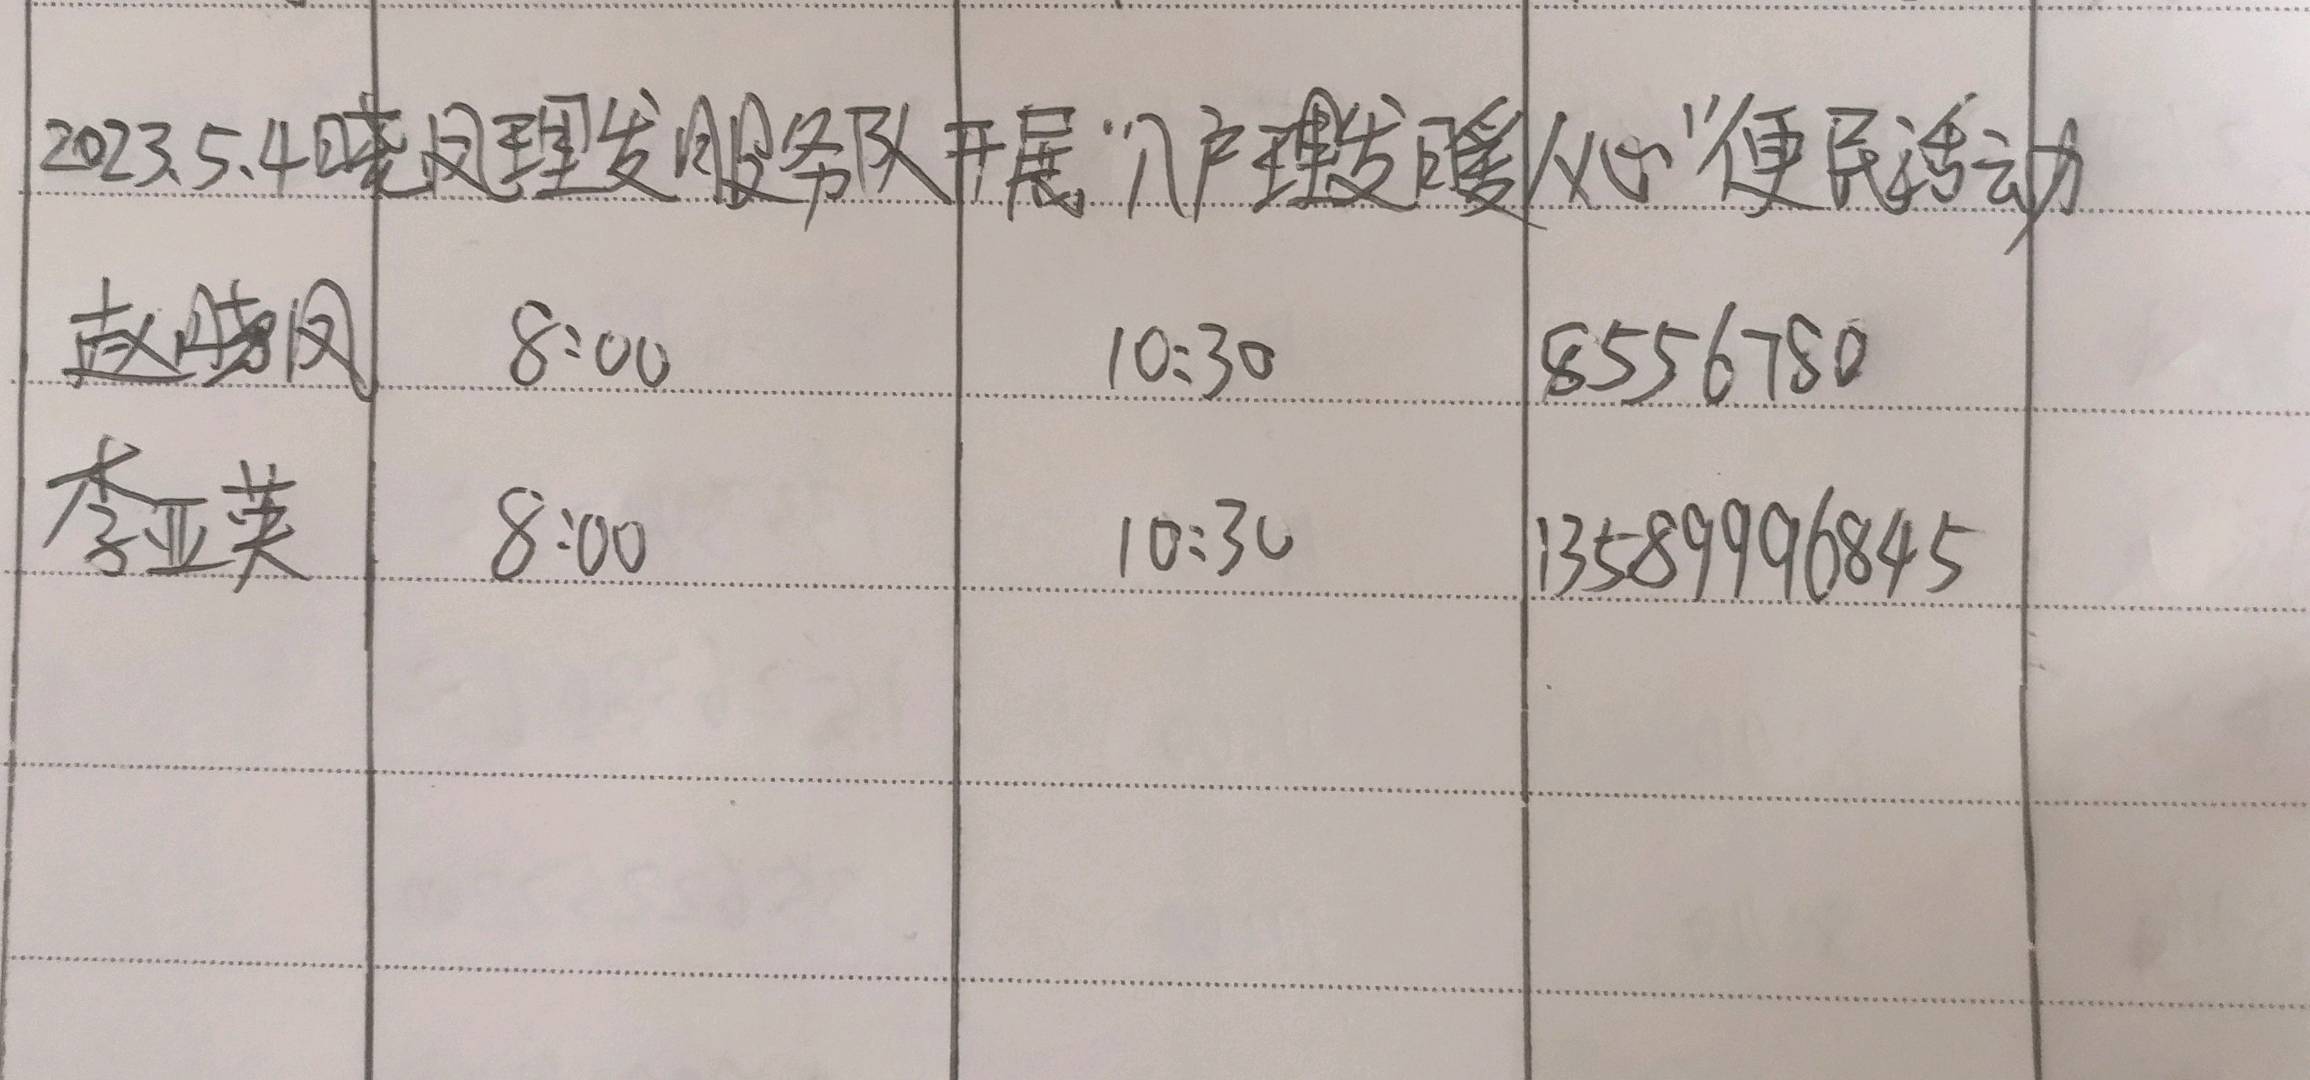 2023.5.4晓凤理发服务队开展“入户理发暖人心”便民活动
赵晓凤 8:00 10:30 8556780
李亚英 8:00 10:30 13589996845